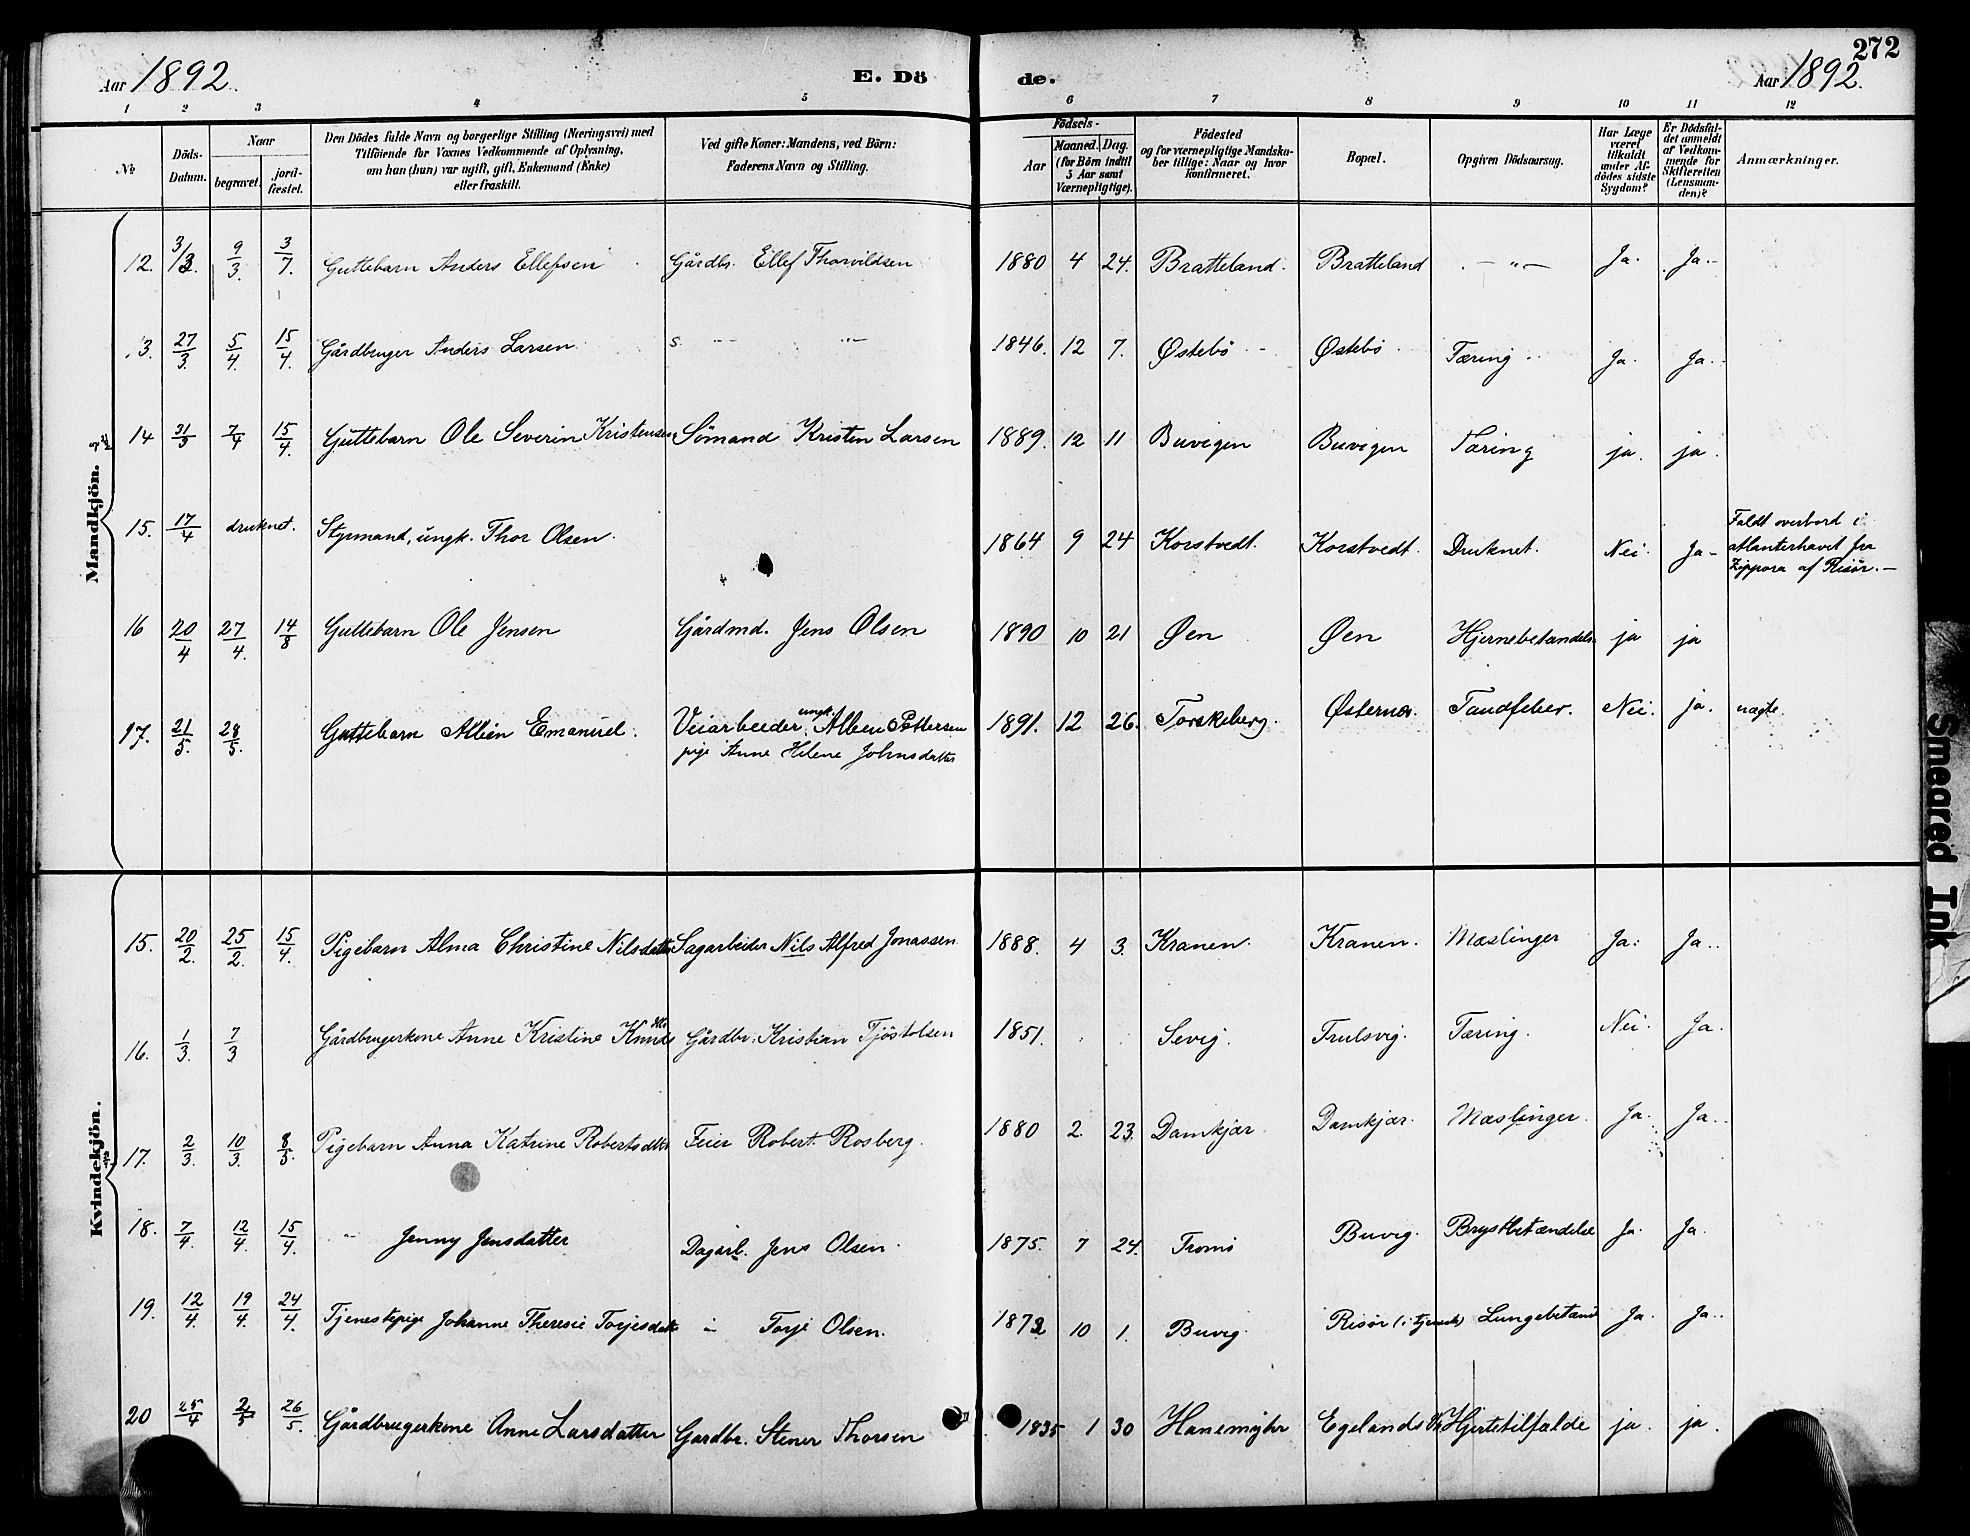 272
Aar 1892. E. Dö de. Aar 1892.
1 2 3 4 5 6 7 8 9 10 11 12
No Döds-Datum. Naar begravet. jordfæstet. Den Dödes fulde Navn og borgerlige Stilling (Næringsvei) med Tilföiende for Voxnes Vedkommende af Oplysning, om han (hun) var ugift, gift, Enkemand (Enke) eller fraskilt. Ved gifte Koner: Mandens, ved Börn: Faderens Navn og Stilling. Födsels- Aar Maaned. Dag. (for Börn indtil 5 Aar samt Værnepligtige). Födested og for værnepligtige Mandskaber tillige: Naar og hvor konfirmeret. Bopæl. Opgiven Dödsaarsag. Har Læge været tilkaldt under Afdödes sidste Sygdom? Er Dödsfaldet anmeldt af Vedkommende for Skifteretten (Lensmanden)? Anmærkninger.
Mandkjön.
12. 3/3. 9/3. 3/7. Guttebarn Anders Ellefsen Gårdbr. Ellef Thorvildsen 1880 4 24. Bratteland. Bratteland — " — Ja. Ja.
13. 27/3 5/4. 15/4. Gårdbruger Anders Larsen s. — " — 1846. 12 7. Østebö Østebö Tæring Ja. Ja.
14 31/3 7/4 15/4. Guttebarn Ole Severin Kristensen Sömand Kristen Larsen 1889. 12 11 Buvigen Buvigen Tæring ja. ja.
15. 17/4 druknet. Styrmand, ungk. Thor Olsen. 1864 9 24 Korstvedt. Korstvedt. Druknet. Nei. Ja Faldt overbord i atlanterhavet fra Zippora af Risør.
16 20/4 27/4. 14/8 Guttebarn Ole Jensen Gårdmd. Jens Olsen 1890 10 21 Øen Øen Hjernebetændelse ja ja
17. 21/5. 28/5. Guttebarn Albin Emanuel. Veiarbeider ungk. Albin Pettersen pige Anne Helene Johnsdatter 1891. 12 26. Torskeberg. Østernes. Tandfeber. Nei. ja. uægte
Kvindekjön.
15. 20/2. 25/2. 15/4. Pigebarn Alma Christine Nilsdatter Sagarbeider Nils Alfred Jonassen 1888. 4 3. Kranen. Kranen. Mæslinger Ja. Ja.
16. 1/3. 7/3 Gårdbrugerkone Anne Kristine Knuds dtr Gårdbr. Kristian Tjöstolsen 1851. Sevig. Trulsvig. Tæring. Nei. Ja.
17. 2/3. 10/3. 8/5. Pigebarn Anna Katrine Robertsdtr Feier Robert Rosberg. 1880 2. 23. Damkjær Damkjær. Mæslinger. Ja. Ja.
18. 7/4. 12/4. 15/4. " Jenny Jensdatter Dagarb. Jens Olsen. 1875. 7 24. Tromö Buvig. Brystbetændelse Ja. Ja.
19. 12/4. 19/4. 24/4. Tjenestepige Johanne Theresie Torjesdatter " Torje Olsen. 1872 10 1. Buvig. Risør (i tjeneste) Lungebetænd Ja. Ja.
20 25/4 2/5 26/5. Gårdbrugerkone Anne Larsdatter Gardbr. Stener Thorsen 1835 1 30 Hanemyhr Egelands Hjertetilfælde ja. ja.
Smeared Ink